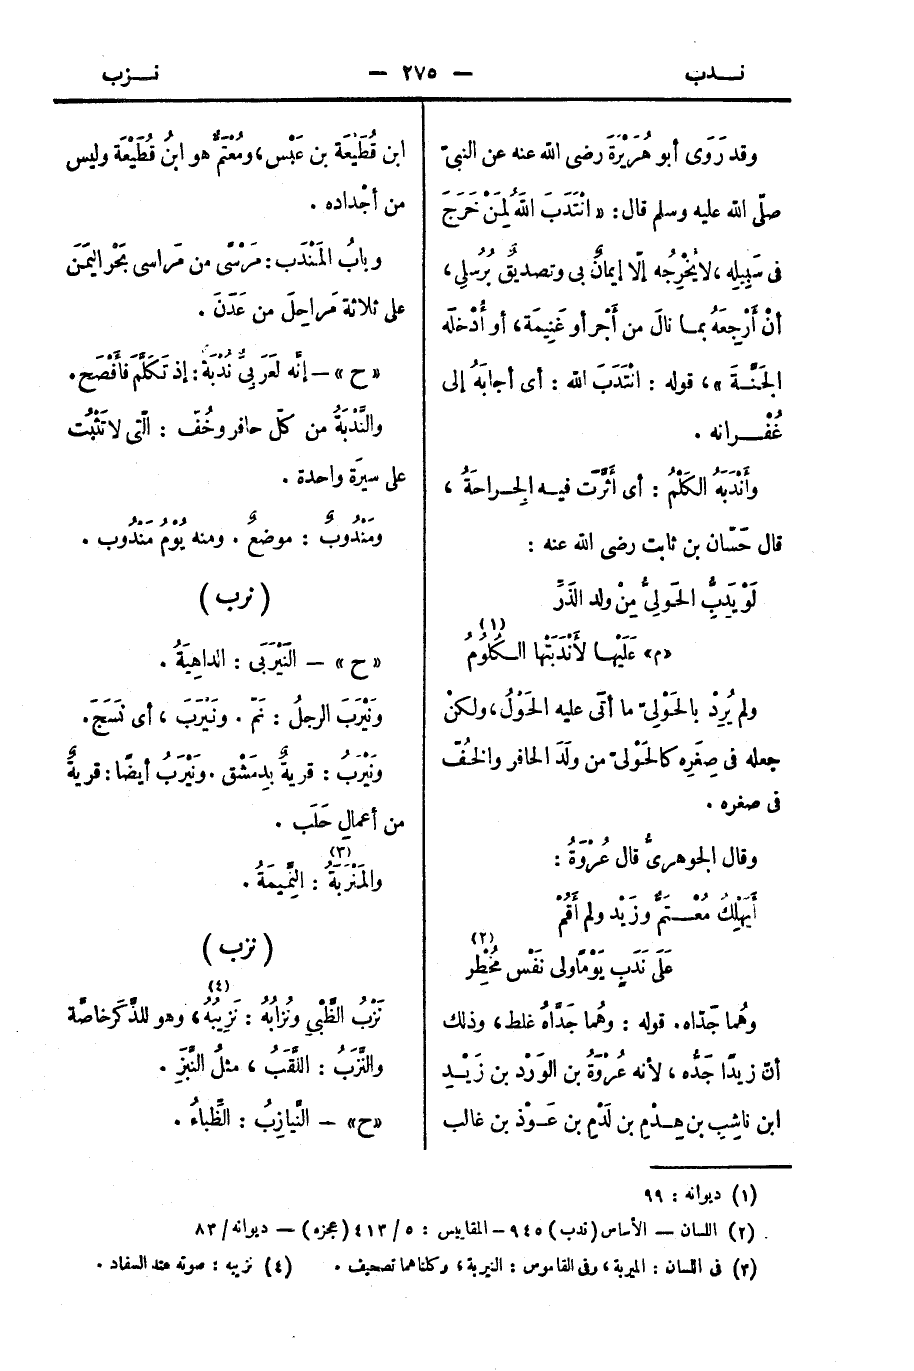 نـــدب
— ٢٧٥ —
نـــزب
وقد رَوَى أبو هُرَيْرَةَ رضى الله عنه عن النبىّ
صلّى الله عليه وسلم قال: « انْتَدَبَ اللهُ لِمَنْ خَرَجَ
فى سَبِيلِه ، لا يُخْرِجُه إلّا إيمانٌ بى وتصديقٌ بُرسُلِى ،
أنْ أَرْجِعَهُ بمـا نالَ من أَجْرٍ أو غَنِيمَة ، أو أُدْخلَه
الجَنَّـةَ » ، قوله : انْتَدَبَ الله : أى أجابَهُ إلى
غُفْـــرانه .
وأَنْدَبَهُ الكَلْمُ : أى أَثَّرَت فيـه الِجـراحةُ ،
قال حَسّان بن ثابت رضى الله عنه :
لَوْ يَدِبُّ الحَولِىُّ مِنْ ولد الذَرِّ
«م» عَلَيهـا لأَنْدَبَتْها الـكُلُومُ (١)
ولم يُرِدْ بالحَوْلِىّ ما أتى عليه الحَوْلُ ، ولكنْ
جعله فى صِغَرِه كالحَوْلىّ من ولَدَ الحافر والخُفّ
فى صغره .
وقال الجوهرىُّ قال عُرْوَةُ :
أَيَهْلِكُ مُعْـــتَمٌّ وزَيْد ولم أَقُمْ
عَلَى نَدَبٍ يَوْمًا ولى نَفْس مُخْطِر (٢)
وهُما جَدّاه. قوله : وهُما جَدَّاهُ غلط ، وذلك
أنّ زيدًا جَدُّه ، لأنه عُرْوَةُ بن الوَرْد بن زَيْـدِ
ابن ناشِبِ بن هِـدْمِ بن لَدْمِ بن عَـوْذ بن غالب
ابن قُطَيْعَة بن عَبْس ، ومُعْتَمٌّ هو ابنُ قُطَيْعَةَ وليس
من أجْداده .
وبابُ المَنْدَب : مَرْسًى من مَراسى بَحْر اليَمَن
على ثلاثة مَراحِلَ من عَدَنَ .
« ح » – إنَّه لعَرَبِىٌّ نُدْبَةٌ : إذ تَكَلَّمَ فأَفْصَح .
والنَّدْبَةُ من كلّ حافر وخُفّ : الّتى لا تَثْبُت
على سيرَة واحدة .
ومَنْدُوبٌ : موضعٌ . ومنه يُوْمُ مَنْدُوب .
( نرب )
« ح » – النَّيْرَبَى : الداهِيَةُ .
ونَيْرَبَ الرجلُ : نَمّ . ونَيْرَبَ ، أى نَسَجَ .
ونَيْرَبُ : قريةٌ بِدِمَشْق . ونَيْرَبُ أيضًا : قريةٌ
من أعمالِ حَلَب .
والمَنْرَبَةُ (٣) : النَّمِيمَةُ .
( نزب )
نَزْبُ الظَّبْىِ ونُزابُهُ : نَزِيبُهُ (٤) ، وهو للذَّكَر خاصَّة
والنَّزَبُ : اللَّقَبُ ، مثلُ النَّبَزِ .
«ح» – النَّيازِبُ : الظِّباءُ .
(١) ديوانه : ٩٩
(٢) اللسان – الأساس (ندب) ٩٤٥ – المقاييس : ٥ /٤١٣ (عجزه) – ديوانه/ ٨٣
(٣) فى اللسان : الميربة ، وفى القاموس : النيربة ، وكلتاهما تصحيف . (٤) نزيبه : صوته عند السفاد .